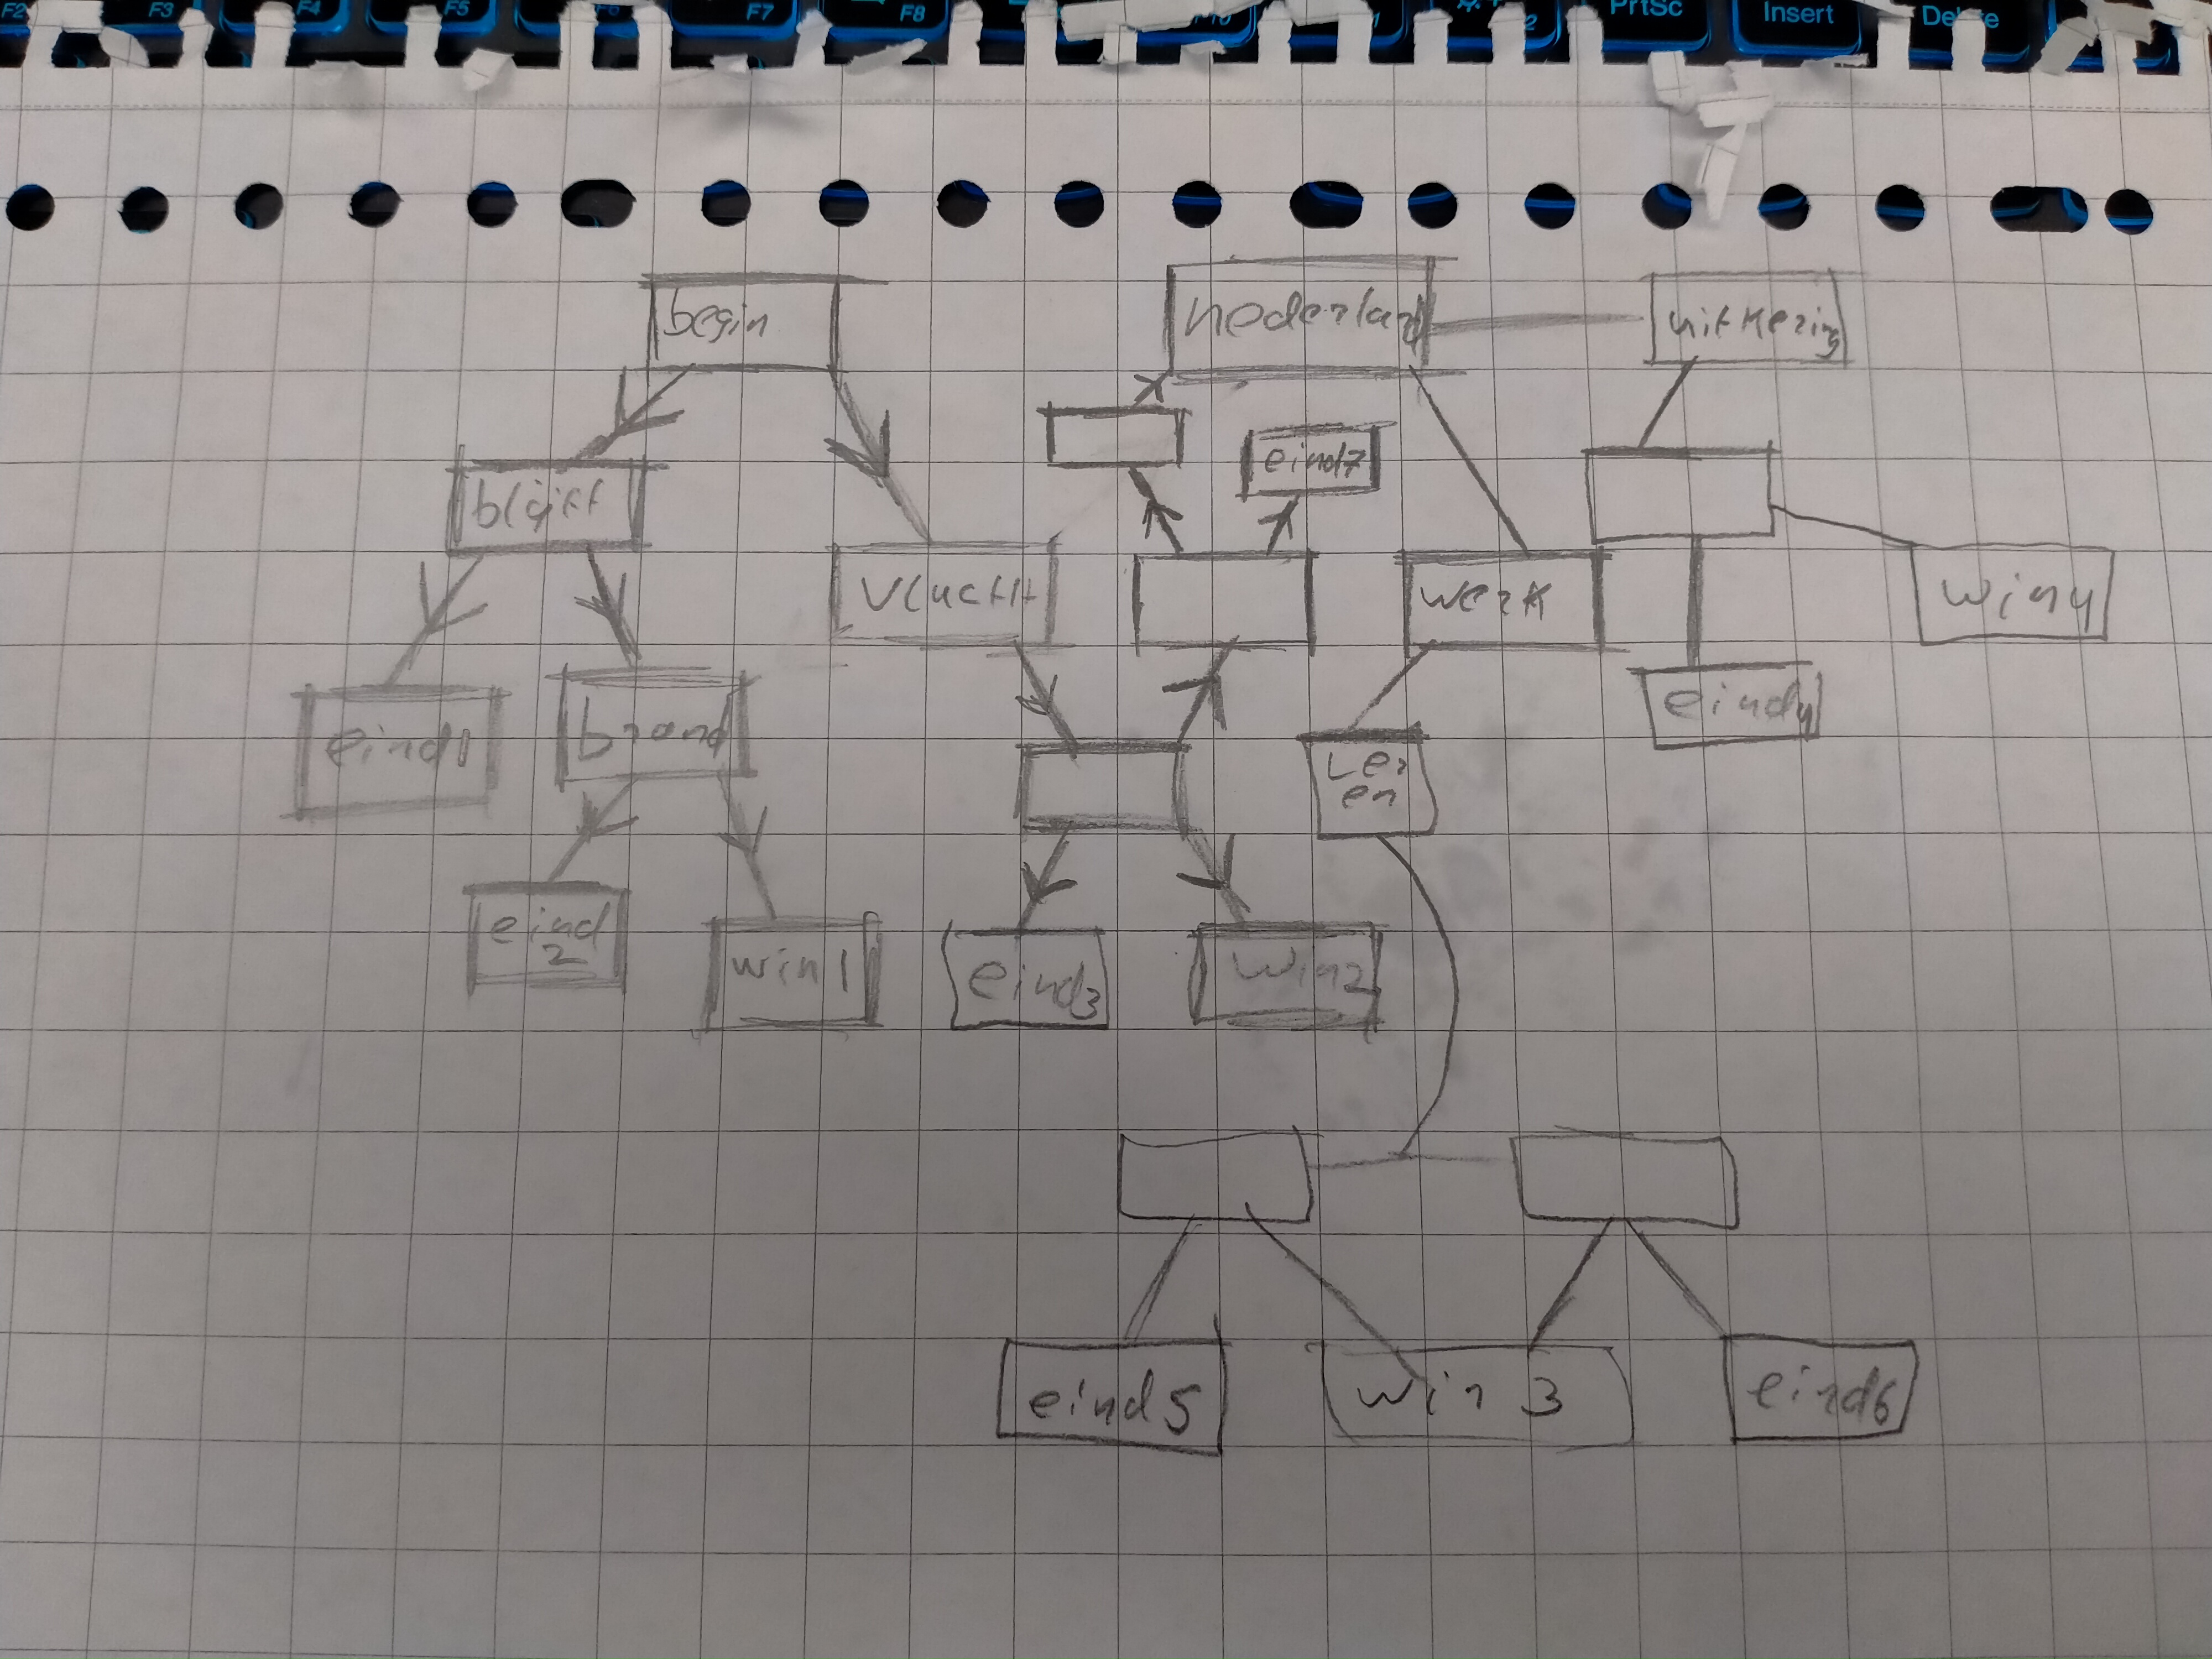 F2
F3
F4
F5
F7
F8
PrtSc
Insert
begin
nederland
uitkering
eind7
blijft
vlucht
werk
win4
eind1
brand
eind4
Ler
en
eind
2
win1
eind3
win2
eind5
win3
eind6